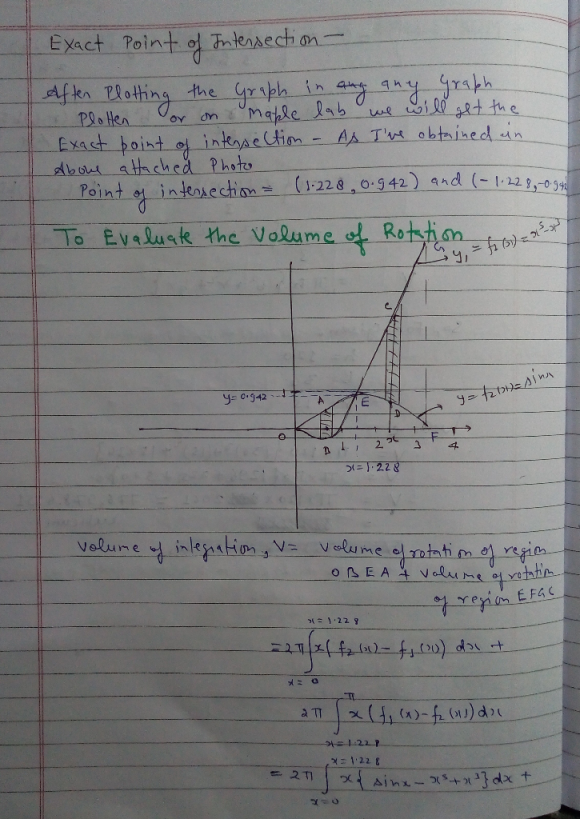 Exact Point of Intersection —
After Plotting the Graph in any Graph
Plotter or on Maple lab we will get the
Exact point of intersection - As I've obtained in
above attached Photo
Point of intersection = (1.228, 0.942) and (-1.228, -0.942
To Evaluate the Volume of Rotation
G
y₁ = f₂(x) = x⁵-x³
C
y = 0.942
1
A
E
D
y = f₂(x) = sinx
O
B
1
2
x
3
F
4
x = 1.228
Volume of integration, V = Volume of rotation of region
OBEA + Volume of rotation
of region EFGC
x = 1.228
= 2π ∫ x(f₂(x) - f₁(x)) dx +
x = 0
π
2π ∫ x(f₁(x) - f₂(x)) dx
x = 1.228
x = 1.228
= 2π ∫ x{sinx - x⁵ + x³} dx +
x = 0